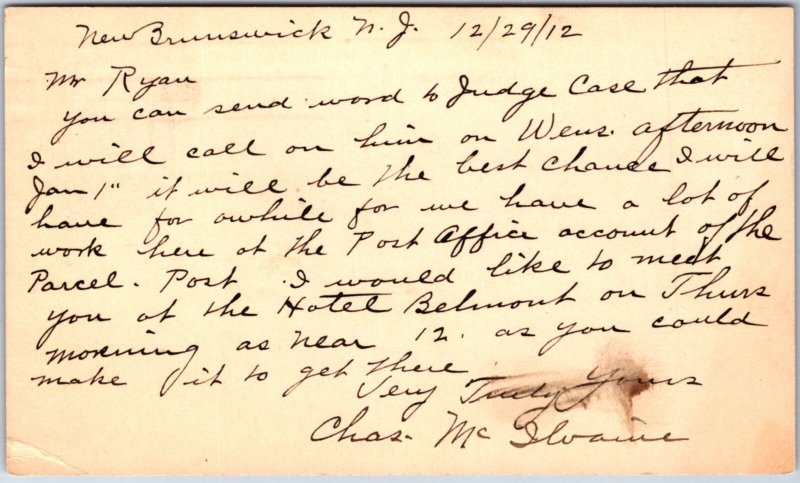 New Brunswick N. J. 12/29/12
Mr Ryan
You can send word to Judge Case that
I will call on him on Wens. afternoon
Jan 1" it will be the best chance I will
have for awhile for we have a lot of
work here at the Post Office account of the
Parcel. Post. I would like to meet
you at the Hotel Belmont on Thurs
morning as near 12. as you could
make it to get there.
Very Truly Yours
Chas. McIlvaine